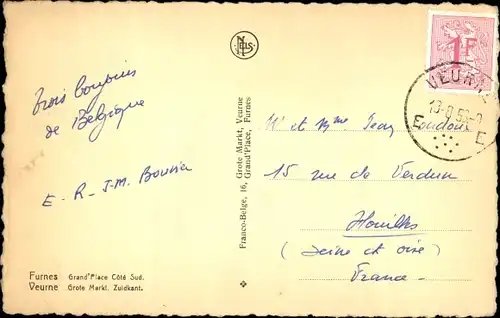 NELS
1F
VEURNE
E E
Trois bonjours
de Belgique
E - R - J-M.
Mr et Mme Jean
15 rue de Verdun
Houilles
(Seine et Oise)
France
Franco-Belge, 16, Grote Markt, Veurne
Grand'Place, Furnes
Furnes Grand'Place Côté Sud.
Veurne Grote Markt. Zuidkant.